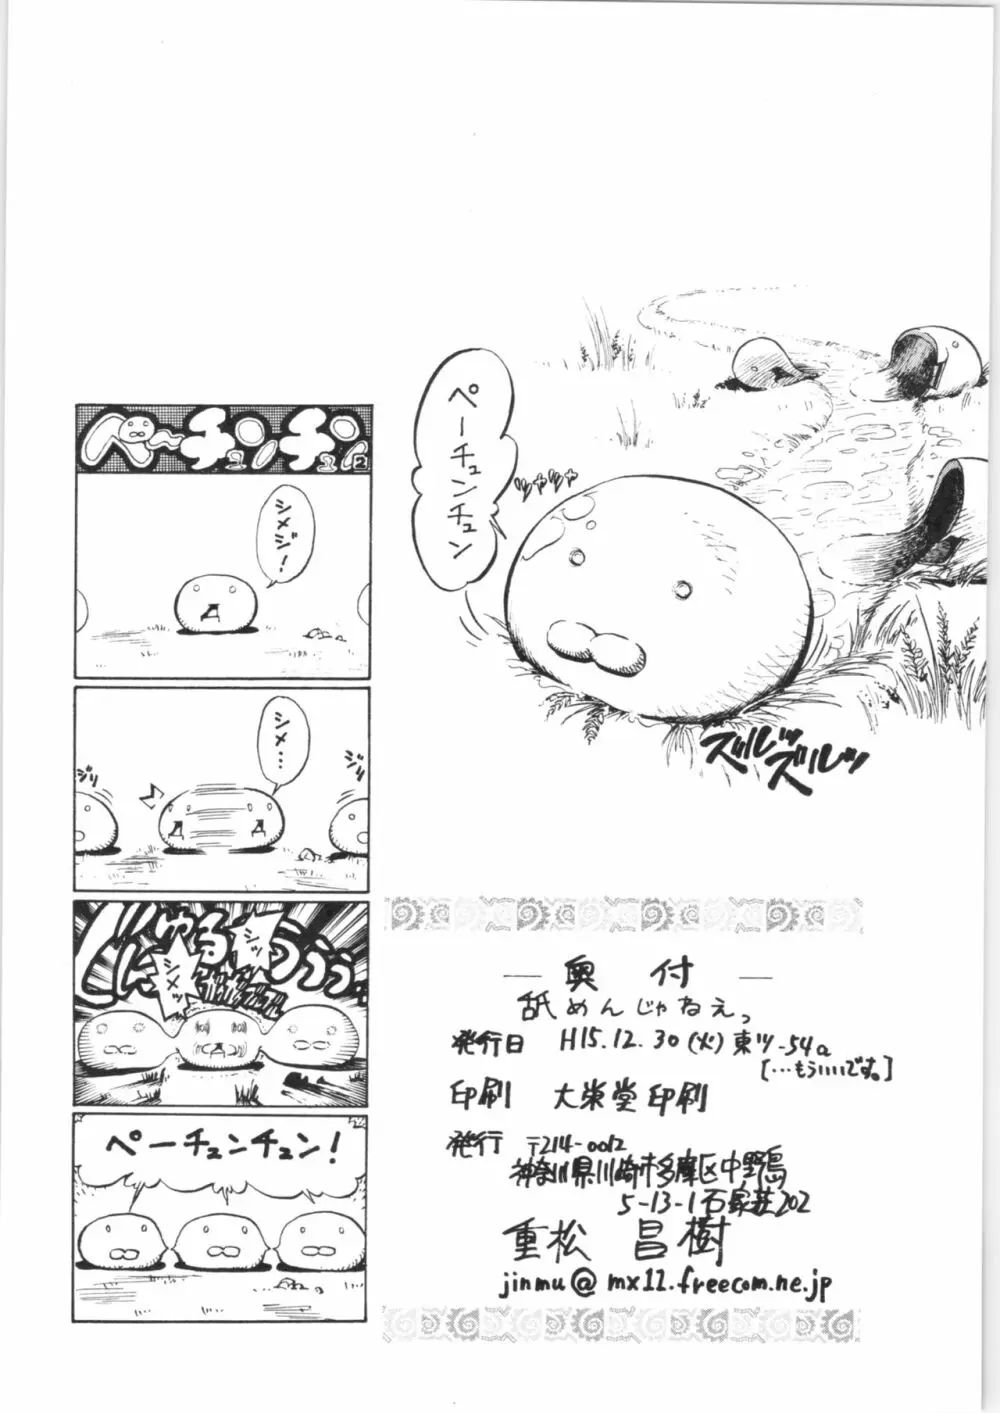 ペーチュンチュン
ツヤツヤ
ズルッ
ズルッ
ペーチュンチュン2
シメジ!
シメ…
ジリ
ジリ
シッ
シメッ
ペーチュンチュン!
奥付
舐めんじゃねえっ
発行日 H15.12.30(火)東ツ-54a
[…もういいです。]
印刷 大栄堂印刷
発行 〒214-0012
神奈川県川崎市多摩区中野島
5-13-1石家荘202
重松 昌樹
jinmu@mx12.freecom.ne.jp